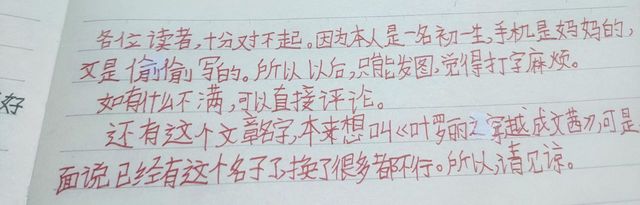 各位读者,十分对不起。因为本人是一名初一生,手机是妈妈的,
文是偷偷写的。所以以后,只能发图,觉得打字麻烦。
好
如有什么不满,可以直接评论。
还有这个文章名字,本来想叫《叶罗丽之穿越成文茜》,可是
面说已经有这个名子了,换了很多都不行。所以,请见谅。